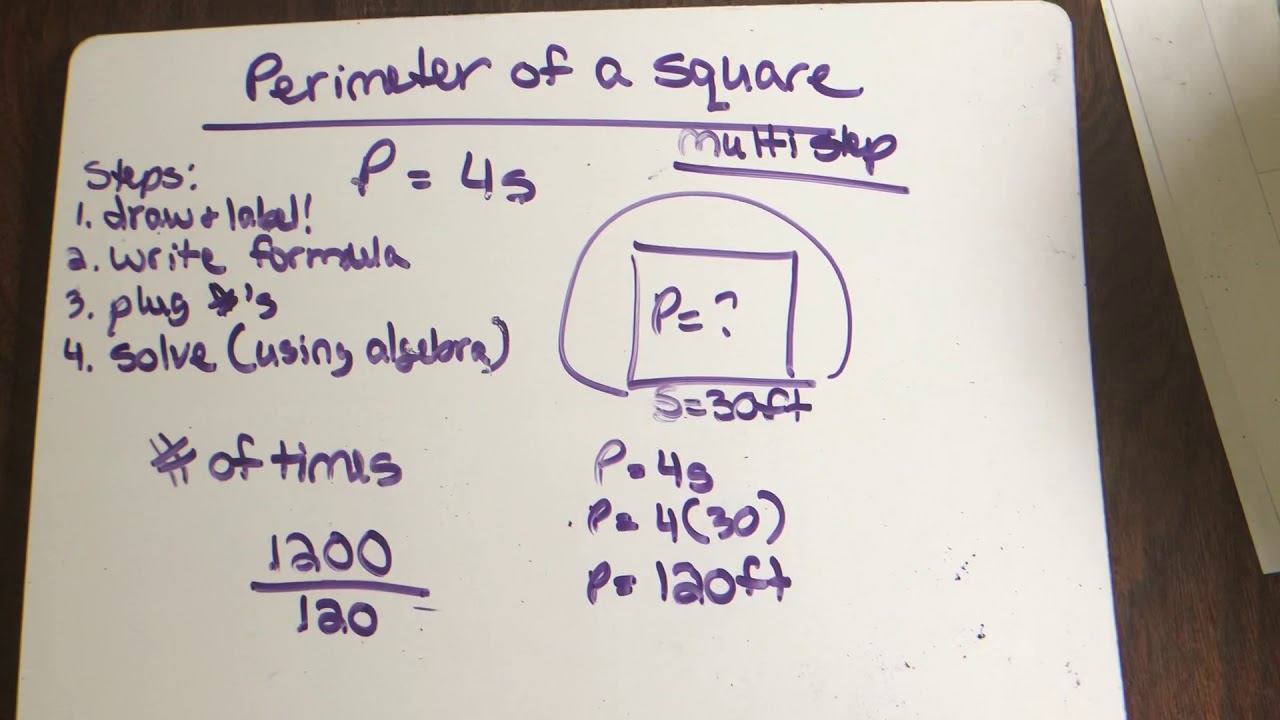 Perimeter of a square
multi step
P = 4s
Steps:
1. draw + label!
2. write formula
3. plug #'s
4. solve (using algebra)
P = ?
S = 30ft
# of times
1200
120
P = 4s
P = 4(30)
P = 120ft